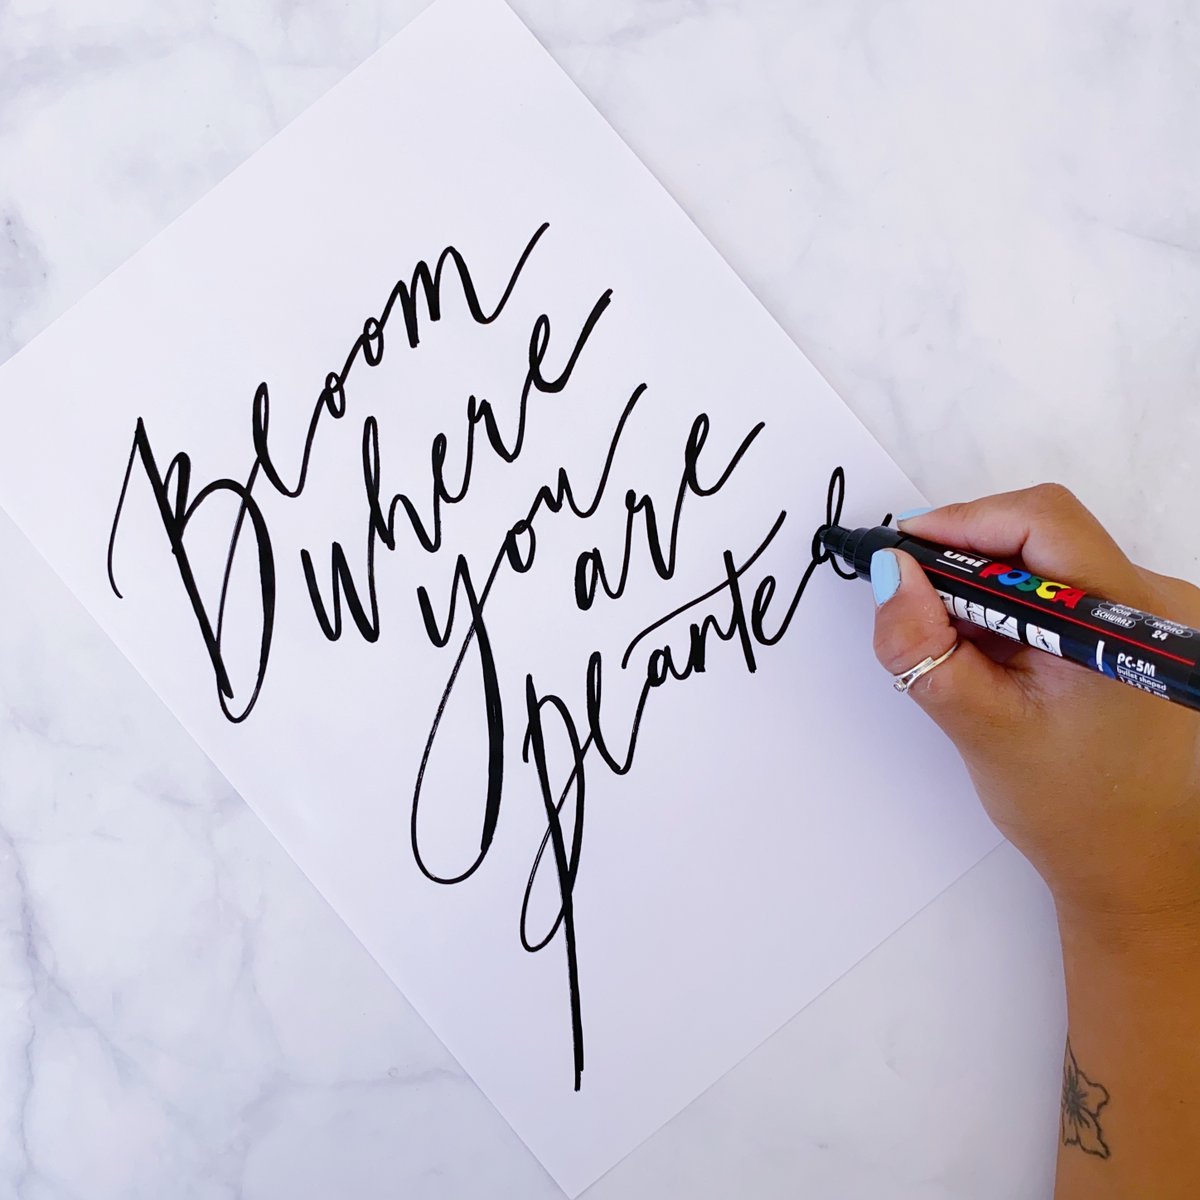 Bloom
where
you
are
planted
uni POSCA
NOIR
SCHWARZ
NEGRO
24
PC-5M
bullet shaped